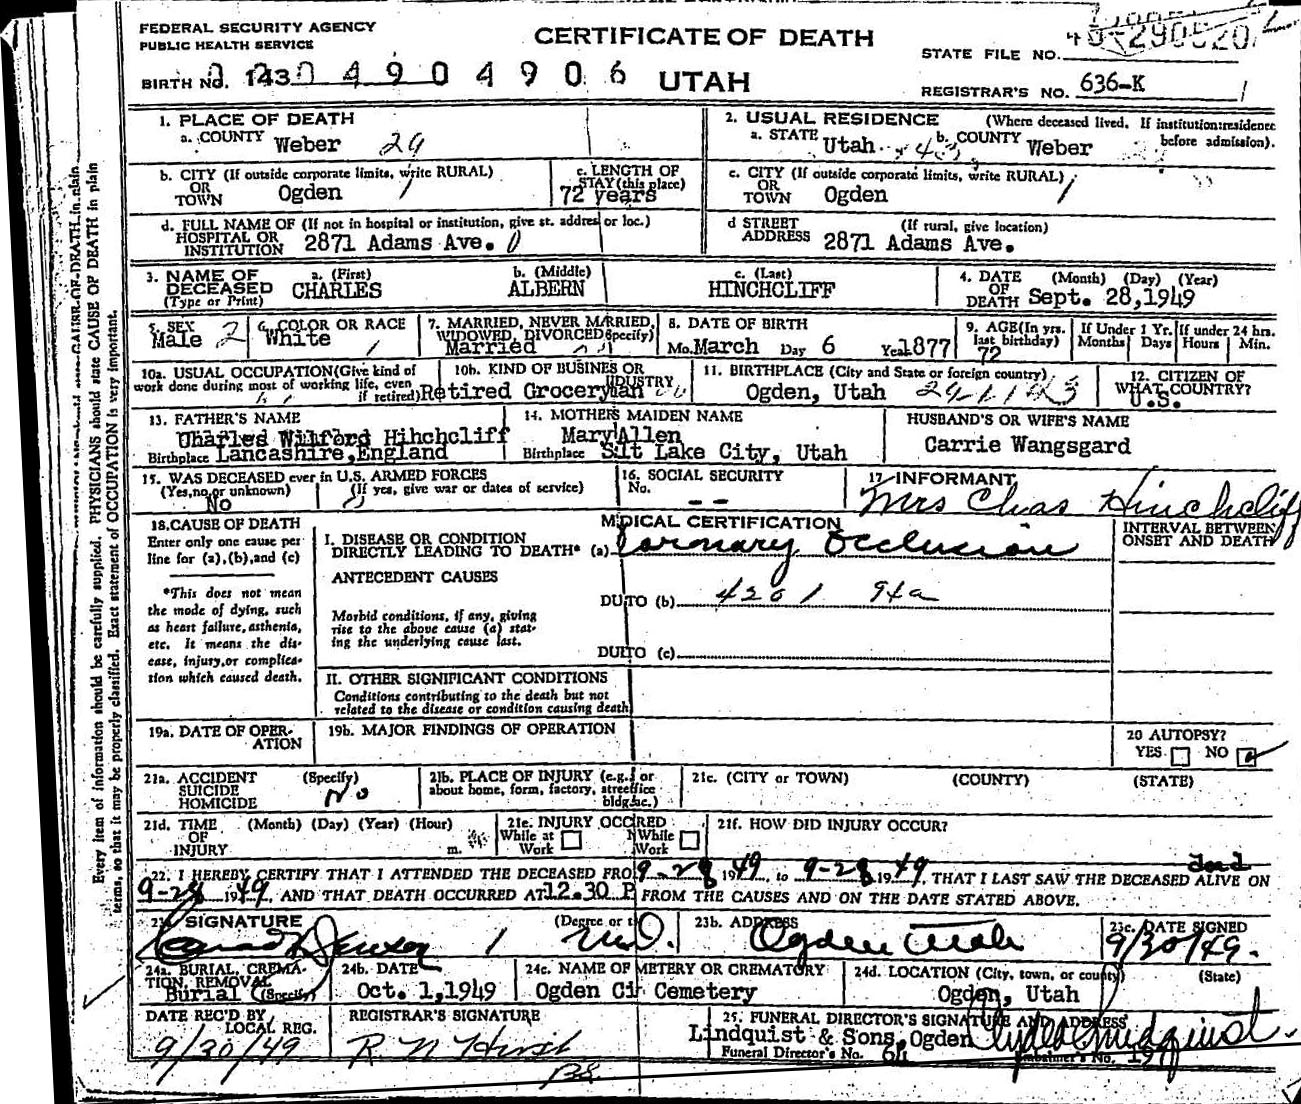 FEDERAL SECURITY AGENCY
PUBLIC HEALTH SERVICE
CERTIFICATE OF DEATH
STATE FILE NO.
BIRTH NO. 4 9 0 4 9 0 6 UTAH
REGISTRAR'S NO. 636-K
1. PLACE OF DEATH
a. COUNTY Weber 29
2. USUAL RESIDENCE (Where deceased lived. If institution:residence before admission).
a. STATE Utah b. COUNTY Weber
b. CITY (If outside corporate limits, write RURAL)
OR
TOWN Ogden
c. LENGTH OF
STAY (this place)
72 years
c. CITY (If outside corporate limits, write RURAL)
OR
TOWN Ogden
d. FULL NAME OF (If not in hospital or institution, give st. addres or loc.)
HOSPITAL OR
INSTITUTION 2871 Adams Ave.
d STREET (If rural, give location)
ADDRESS 2871 Adams Ave.
3. NAME OF
DECEASED
(Type or Print)
a. (First)
CHARLES
b. (Middle)
ALBERN
c. (Last)
HINCHCLIFF
4. DATE (Month) (Day) (Year)
OF
DEATH Sept. 28,1949
5. SEX
Male 2
6. COLOR OR RACE
White
7. MARRIED, NEVER MARRIED,
WIDOWED, DIVORCED Specify)
Married
8. DATE OF BIRTH
Mo. March Day 6 Year 1877
9. AGE(In yrs.
last birthday)
72
If Under 1 Yr.
Months Days
If under 24 hrs.
Hours Min.
10a. USUAL OCCUPATION(Give kind of
work done during most of working life, even
if retired)
10b. KIND OF BUSINES OR
INDUSTRY
Retired Groceryman
11. BIRTHPLACE (City and State or foreign country)
Ogden, Utah
12. CITIZEN OF
WHAT COUNTRY?
U.S.
13. FATHER'S NAME
Charles Wilford Hihchcliff
Birthplace Lancashire,England
14. MOTHERS MAIDEN NAME
Mary Allen
Birthplace Slt Lake City, Utah
HUSBAND'S OR WIFE'S NAME
Carrie Wangsgard
15. WAS DECEASED ever in U.S. ARMED FORCES
(Yes,no,or unknown) (If yes, give war or dates of service)
No
16. SOCIAL SECURITY
No. --
17 INFORMANT
Mrs Chas Hinchcliff
18.CAUSE OF DEATH
Enter only one cause per
line for (a),(b),and (c)
*This does not mean
the mode of dying, such
as heart failure, asthenia,
etc. It means the dis-
ease, injury,or complica-
tion which caused death.
MEDICAL CERTIFICATION
I. DISEASE OR CONDITION
DIRECTLY LEADING TO DEATH* (a) Coronary Occlusion
ANTECEDENT CAUSES
DUTO (b) 420 1 94a
Morbid conditions, if any, giving
rise to the above cause (a) stat-
ing the underlying cause last.
DUETO (c)
II. OTHER SIGNIFICANT CONDITIONS
Conditions contributing to the death but not
related to the disease or condition causing death
INTERVAL BETWEEN
ONSET AND DEATH
19a. DATE OF OPER-
ATION
19b. MAJOR FINDINGS OF OPERATION
20 AUTOPSY?
YES NO
21a. ACCIDENT (Specify)
SUICIDE
HOMICIDE No
21b. PLACE OF INJURY (e.g., or
about home, form, factory, streetfice
bldg.)
21c. (CITY or TOWN) (COUNTY) (STATE)
21d. TIME (Month) (Day) (Year) (Hour)
OF
INJURY m.
21e. INJURY OCCRED
While at
Work
While
Work
21f. HOW DID INJURY OCCUR?
22. I HEREBY CERTIFY THAT I ATTENDED THE DECEASED FRO 9-28 1949 to 9-28 1949, THAT I LAST SAW THE DECEASED ALIVE ON
dead
9-28 1949, AND THAT DEATH OCCURRED AT 12.30 P FROM THE CAUSES AND ON THE DATE STATED ABOVE.
SIGNATURE (Degree or t
M.D.
23b. ADDRESS
Ogden Utah
23c. DATE SIGNED
9/30/49.
24a. BURIAL, CREMA-
TION, REMOVAL
Burial (Specify)
24b. DATE
Oct. 1,1949
24c. NAME OF METERY OR CREMATORY
Ogden Ci Cemetery
24d. LOCATION (City, town, or county) (State)
Ogden, Utah
DATE REC'D BY
LOCAL REG.
9/30/49
REGISTRAR'S SIGNATURE
25. FUNERAL DIRECTOR'S SIGNATURE AND ADDRESS
Lindquist & Sons,Ogden
Funeral Director's No. Embalmer's No.
Every item of information should be carefully supplied. PHYSICIANS should state CAUSE OF DEATH in plain
terms, so that it may be properly classified. Exact statement of OCCUPATION is very important.